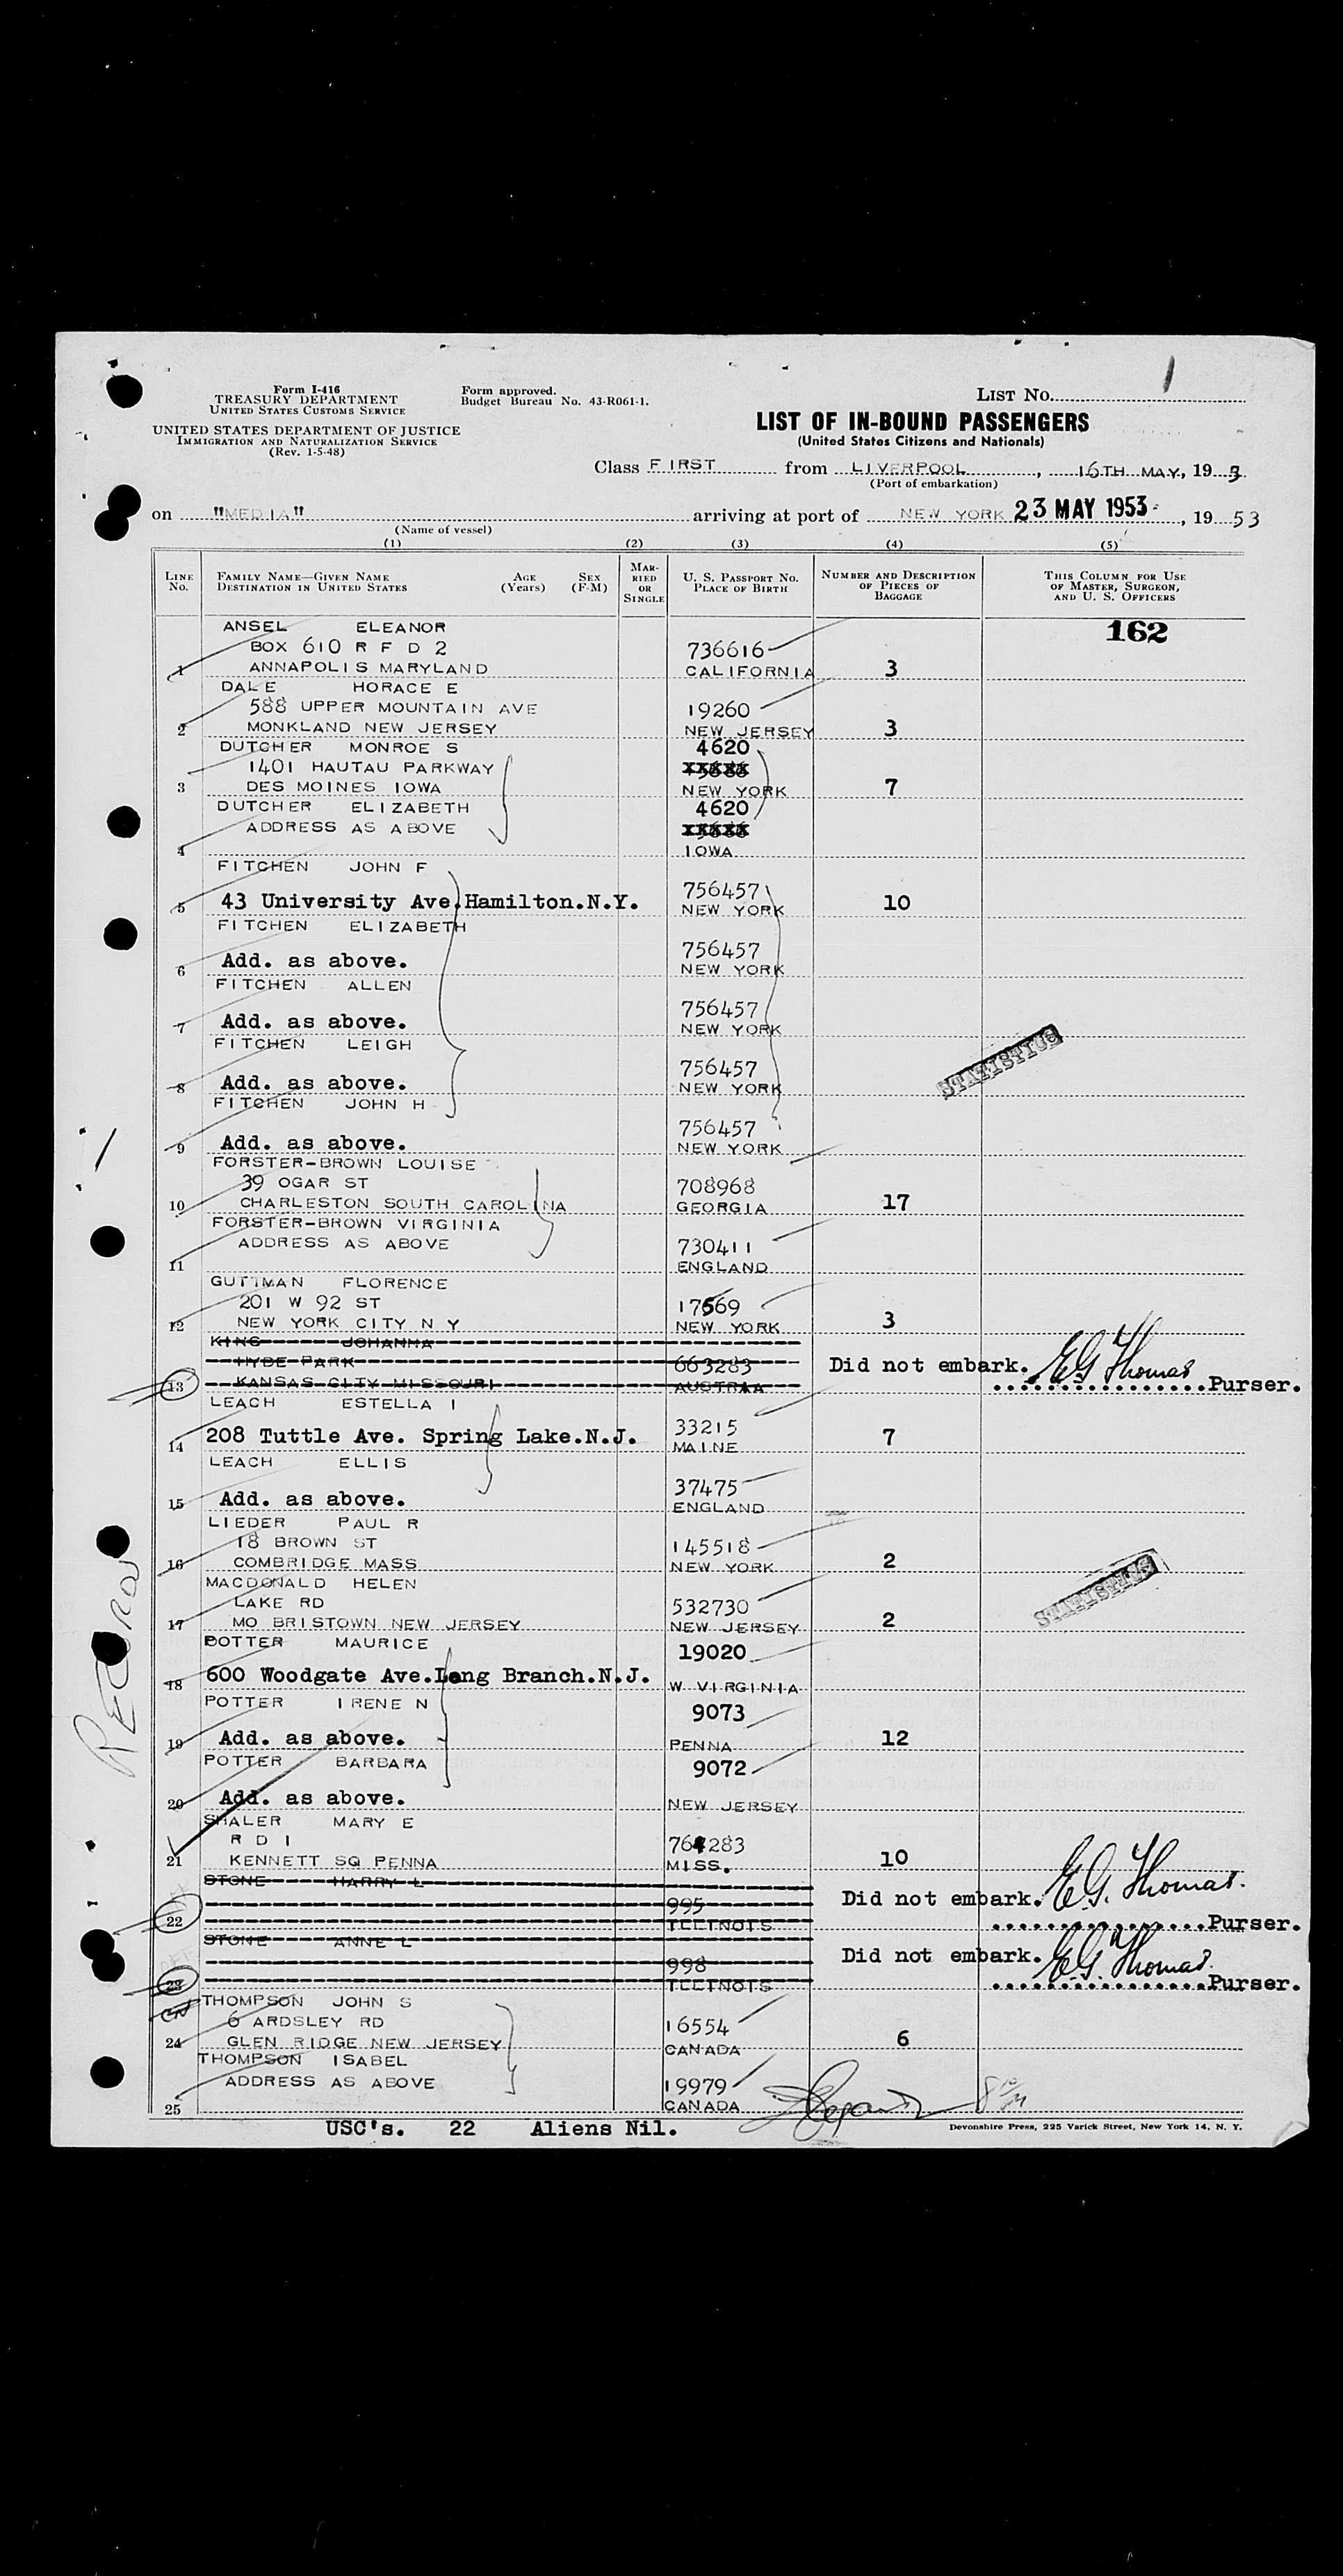 Form I-416
TREASURY DEPARTMENT
UNITED STATES CUSTOMS SERVICE
UNITED STATES DEPARTMENT OF JUSTICE
IMMIGRATION AND NATURALIZATION SERVICE
(Rev. 1-5-48)
Form approved.
Budget Bureau No. 43-R061-1.
LIST NO. 1
LIST OF IN-BOUND PASSENGERS
(United States Citizens and Nationals)
Class FIRST from LIVERPOOL, 16TH MAY, 19 53
(Port of embarkation)
on "MEDIA" arriving at port of NEW YORK 23 MAY 1953, 19 53
(Name of vessel)
(1) (2) (3) (4) (5)
LINE NO. FAMILY NAME—GIVEN NAME DESTINATION IN UNITED STATES AGE (Years) SEX (F-M) MARRIED OR SINGLE U. S. PASSPORT NO. PLACE OF BIRTH NUMBER AND DESCRIPTION OF PIECES OF BAGGAGE THIS COLUMN FOR USE OF MASTER, SURGEON, AND U. S. OFFICERS
162
ANSEL ELEANOR
BOX 610 R F D 2 736616
1 ANNAPOLIS MARYLAND CALIFORNIA 3
DALE HORACE E
588 UPPER MOUNTAIN AVE 19260
2 MONKLAND NEW JERSEY NEW JERSEY 3
DUTCHER MONROE S 4620
1401 HAUTAU PARKWAY
3 DES MOINES IOWA NEW YORK 7
DUTCHER ELIZABETH 4620
ADDRESS AS ABOVE
4 IOWA
FITCHEN JOHN F
756457
5 43 University Ave.Hamilton.N.Y. NEW YORK 10
FITCHEN ELIZABETH
756457
6 Add. as above. NEW YORK
FITCHEN ALLEN
756457
7 Add. as above. NEW YORK
FITCHEN LEIGH
756457
8 Add. as above. NEW YORK
FITCHEN JOHN H
756457
9 Add. as above. NEW YORK
STATISTICS
FORSTER-BROWN LOUISE
39 OGAR ST 708968
10 CHARLESTON SOUTH CAROLINA GEORGIA 17
FORSTER-BROWN VIRGINIA
ADDRESS AS ABOVE 730411
11 ENGLAND
GUTTMAN FLORENCE
201 W 92 ST 17569
12 NEW YORK CITY N Y NEW YORK 3
KING JOHANNA
HYDE PARK 663283 Did not embark. E G Thomas
13 KANSAS CITY MISSOURI AUSTRIA Purser.
LEACH ESTELLA I
33215
14 208 Tuttle Ave. Spring Lake.N.J. MAINE 7
LEACH ELLIS
37475
15 Add. as above. ENGLAND
LIEDER PAUL R
18 BROWN ST 145518
16 COMBRIDGE MASS NEW YORK 2
STATISTICS
MACDONALD HELEN
LAKE RD 532730
17 MO BRISTOWN NEW JERSEY NEW JERSEY 2
POTTER MAURICE 19020
18 600 Woodgate Ave.Long Branch.N.J. W VIRGINIA
POTTER IRENE N 9073
19 Add. as above. PENNA 12
POTTER BARBARA 9072
20 Add. as above. NEW JERSEY
SHALER MARY E
R D I 764283
21 KENNETT SQ PENNA MISS. 10
STONE HARRY L
995 Did not embark. E G. Thomas.
22 ILLINOIS Purser.
STONE ANNE L
998 Did not embark. E. G. Thomas.
23 ILLINOIS Purser.
THOMPSON JOHN S
6 ARDSLEY RD 16554
24 GLEN RIDGE NEW JERSEY CANADA 6
THOMPSON ISABEL
ADDRESS AS ABOVE 19979
25 CANADA
RECORD
USC's. 22 Aliens Nil.
Devonshire Press, 225 Varick Street, New York 14, N. Y.